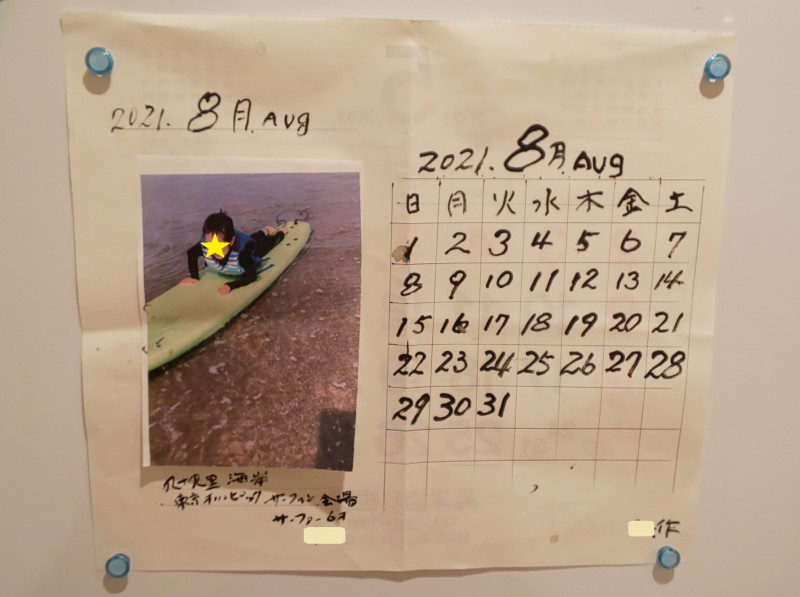 2021. 8月 Aug
九十九里 海岸
東京オリンピック サーフィン 会場
サーファー 6才
2021. 8月 Aug
日 月 火 水 木 金 土
1 2 3 4 5 6 7
8 9 10 11 12 13 14
15 16 17 18 19 20 21
22 23 24 25 26 27 28
29 30 31
作